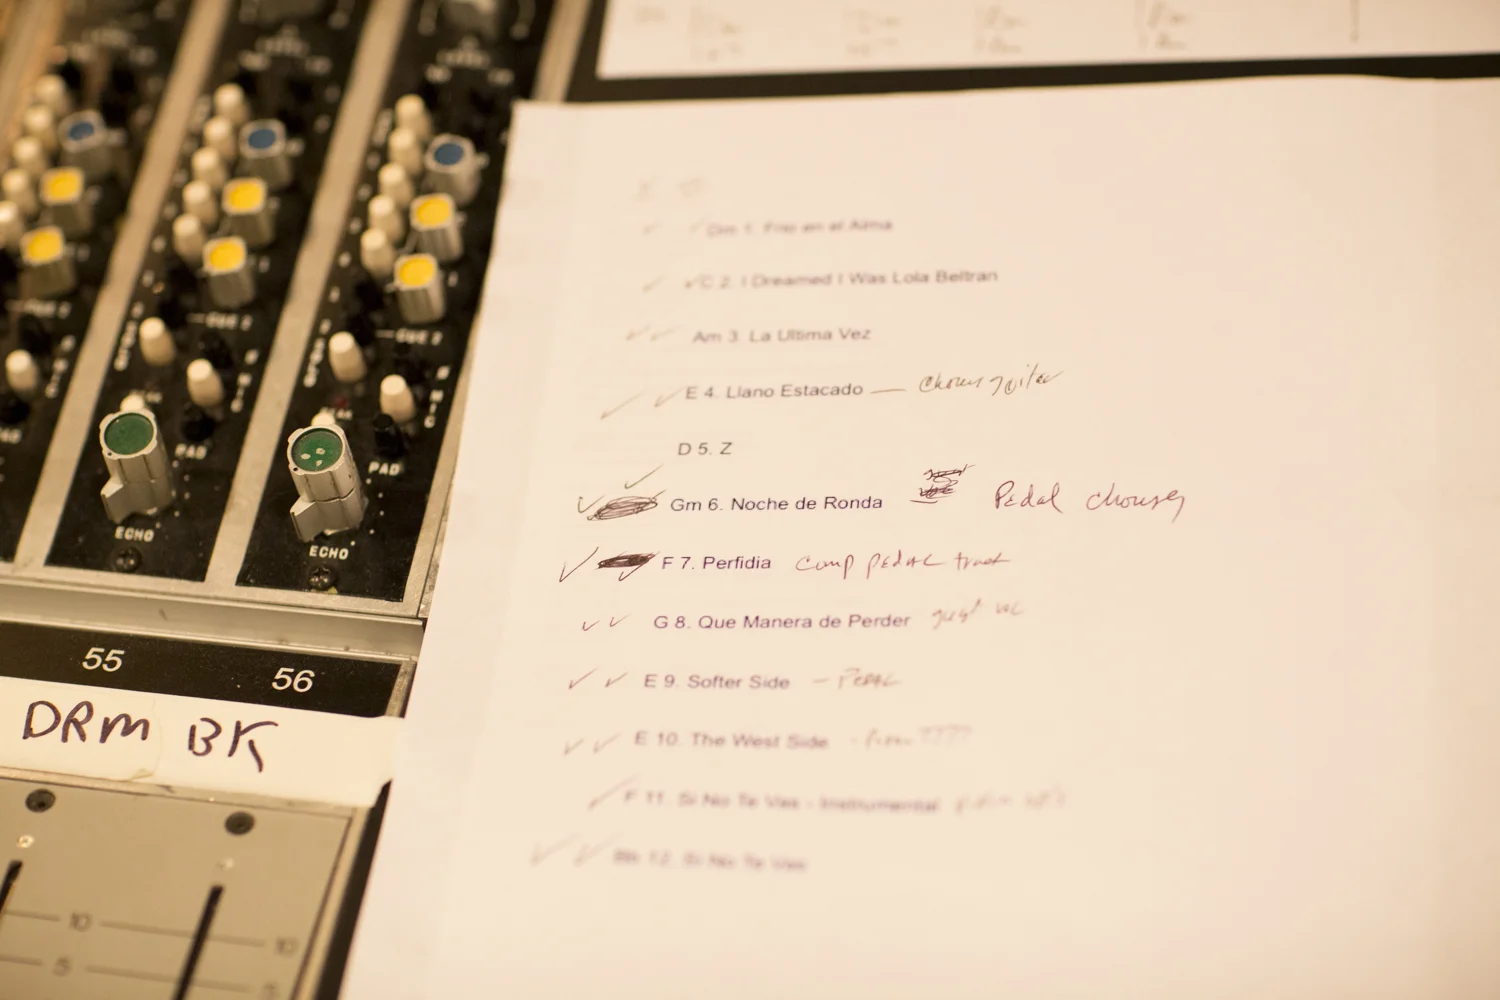 Dm 1. Frio en el Alma
C 2. I Dreamed I Was Lola Beltran
Am 3. La Ultima Vez
E 4. Llano Estacado — Chorus guitar
D 5. Z
Gm 6. Noche de Ronda Pedal chorus
F 7. Perfidia comp pedal track
G 8. Que Manera de Perder
E 9. Softer Side — Pedal
E 10. The West Side
F 11. Si No Te Vas - Instrumental
Bb 12. Si No Te Vas
CUE 2
CUE 2
CUE 2
MIC
PAD
PAD
ECHO
ECHO
55
56
DRM BK
10
10
5
5